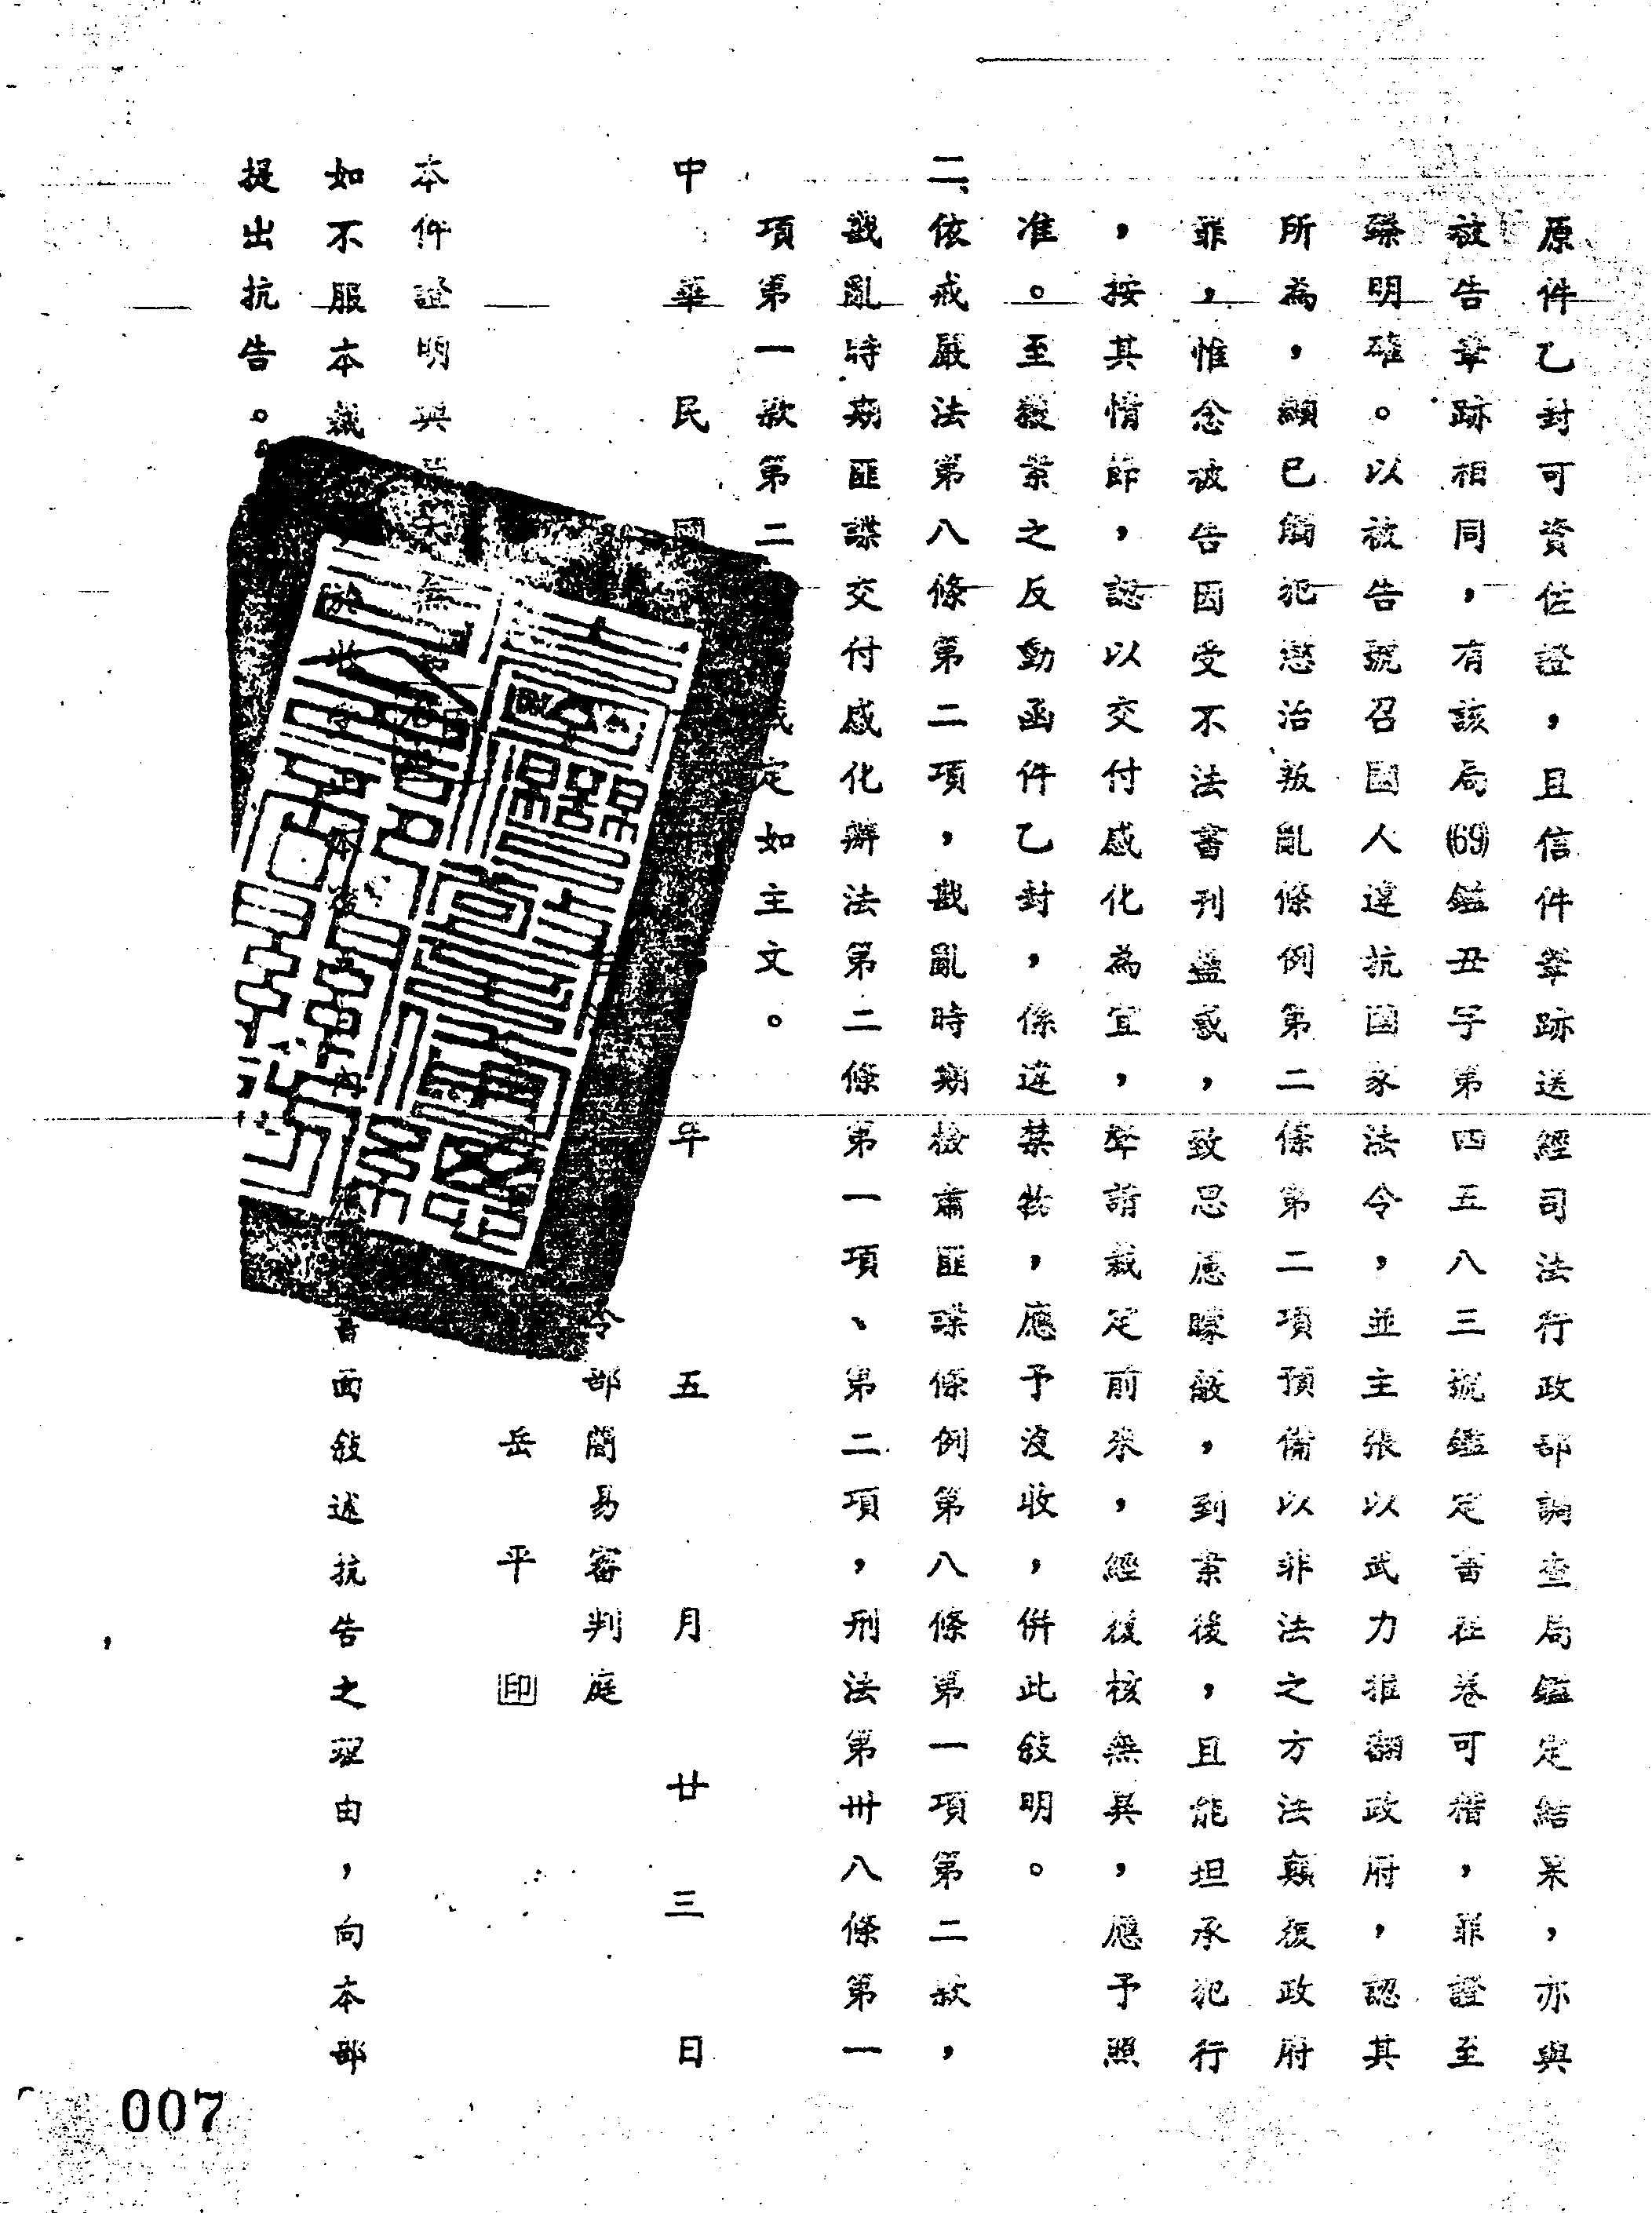 原件乙封可資佐證，且信件筆跡送經司法行政部調查局鑑定結果，亦與
被告筆跡相同，有該局(69)鑑丑字第四五八三號鑑定書在卷可稽，罪證至
臻明確。以被告號召國人違抗國家法令，並主張以武力推翻政府，認其
所為，顯已觸犯懲治叛亂條例第二條第二項預備以非法之方法顛復政府
罪，惟念被告因受不法書刊蠱惑，致思慮矇蔽，到案後，且能坦承犯行
，按其情節，認以交付感化為宜，聲請裁定前來，經復核無異，應予照
准。至獲案之反動函件乙封，係違禁物，應予沒收，併此敘明。
二、依戒嚴法第八條第二項，戡亂時期檢肅匪諜條例第八條第一項第二款，
戡亂時期匪諜交付感化辦法第二條第一項、第二項，刑法第卅八條第一
項第一款第二定如主文。
中華民國年五月廿三日
令部簡易審判庭
岳平印
本件證明與無
如不服本裁於收本內書面敘述抗告之理由，向本部
提出抗告。
007